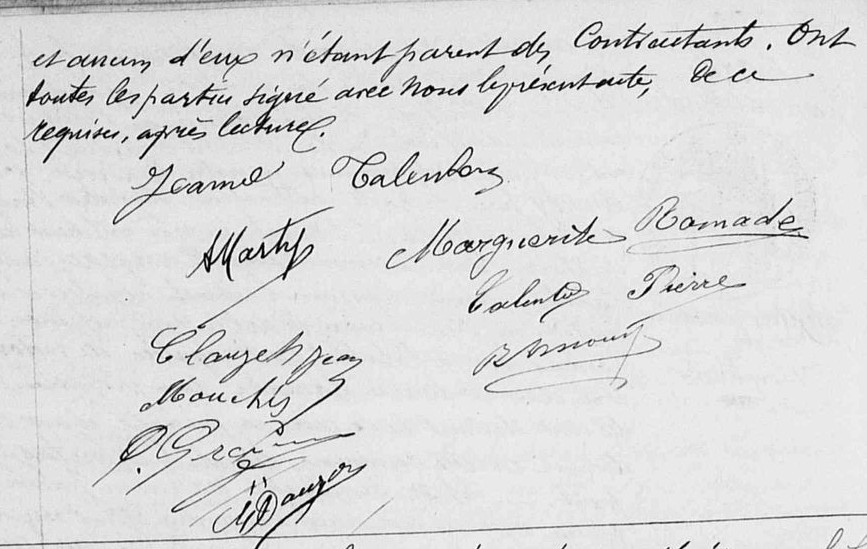 et aucun d'eux n'étant parent des Contractants. Ont
toutes les parties signé avec nous le présent acte, de ce
requises, après lecture.
Jeanne
AMarty Marguerite Ramade
Pierre
Clauzel Jean
Mouches